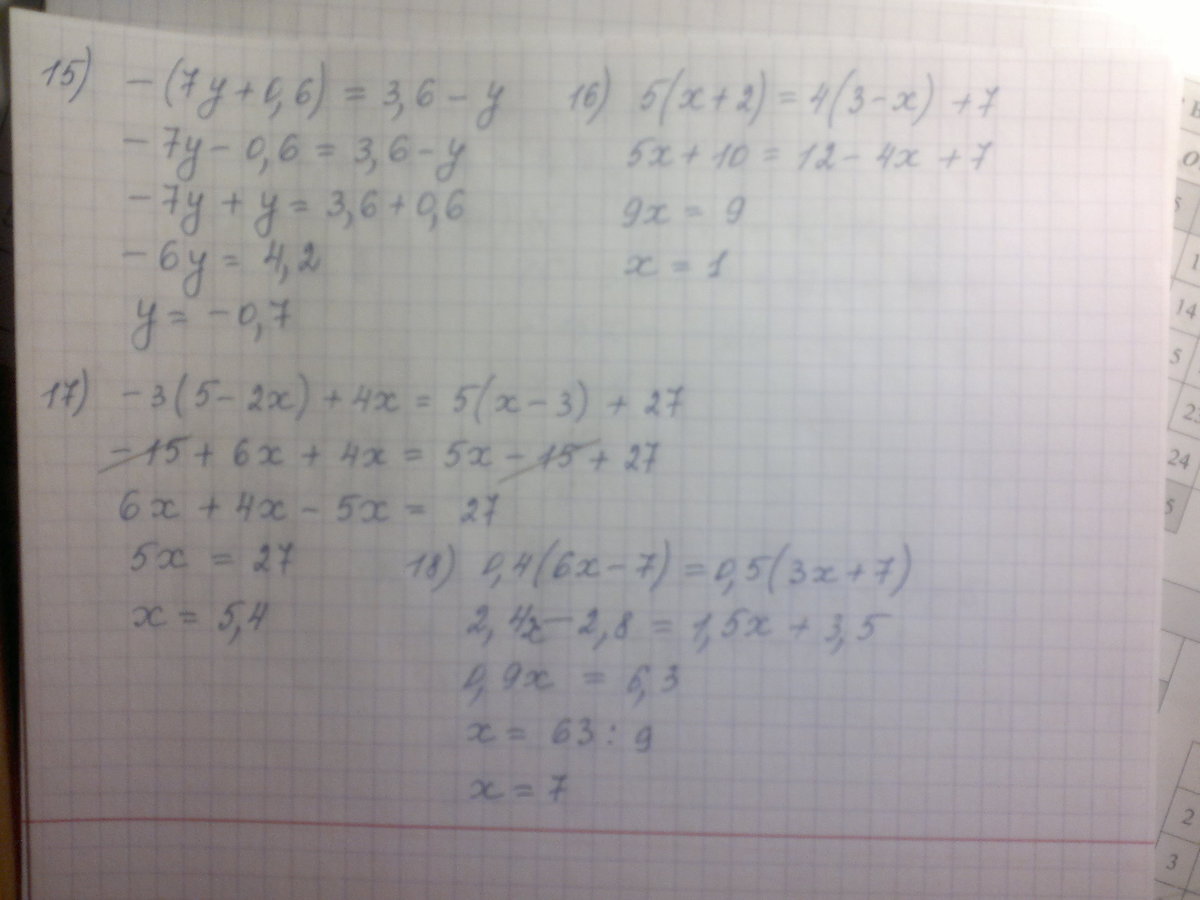 15) -(7y+0,6) = 3,6 - y
-7y - 0,6 = 3,6 - y
-7y + y = 3,6 + 0,6
-6y = 4,2
y = -0,7
16) 5(x+2) = 4(3-x) + 7
5x + 10 = 12 - 4x + 7
9x = 9
x = 1
17) -3(5-2x) + 4x = 5(x-3) + 27
-15 + 6x + 4x = 5x - 15 + 27
6x + 4x - 5x = 27
5x = 27
x = 5,4
18) 0,4(6x-7) = 0,5(3x+7)
2,4x - 2,8 = 1,5x + 3,5
0,9x = 6,3
x = 63 : 9
x = 7
5
1
14
5
23
24
5
2
3